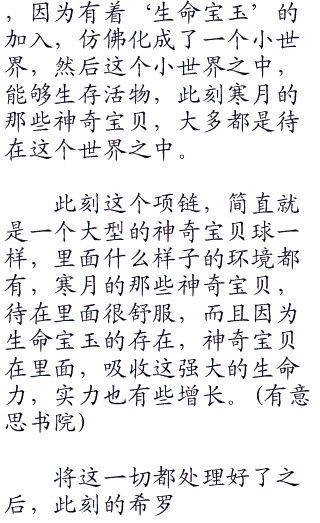 ，因为有着‘生命宝玉’的
加入，仿佛化成了一个小世
界，然后这个小世界之中，
能够生存活物，此刻寒月的
那些神奇宝贝，大多都是待
在这个世界之中。
此刻这个项链，简直就
是一个大型的神奇宝贝球一
样，里面什么样子的环境都
有，寒月的那些神奇宝贝，
待在里面很舒服，而且因为
生命宝玉的存在，神奇宝贝
在里面，吸收这强大的生命
力，实力也有些增长。(有意
思书院)
将这一切都处理好了之
后，此刻的希罗